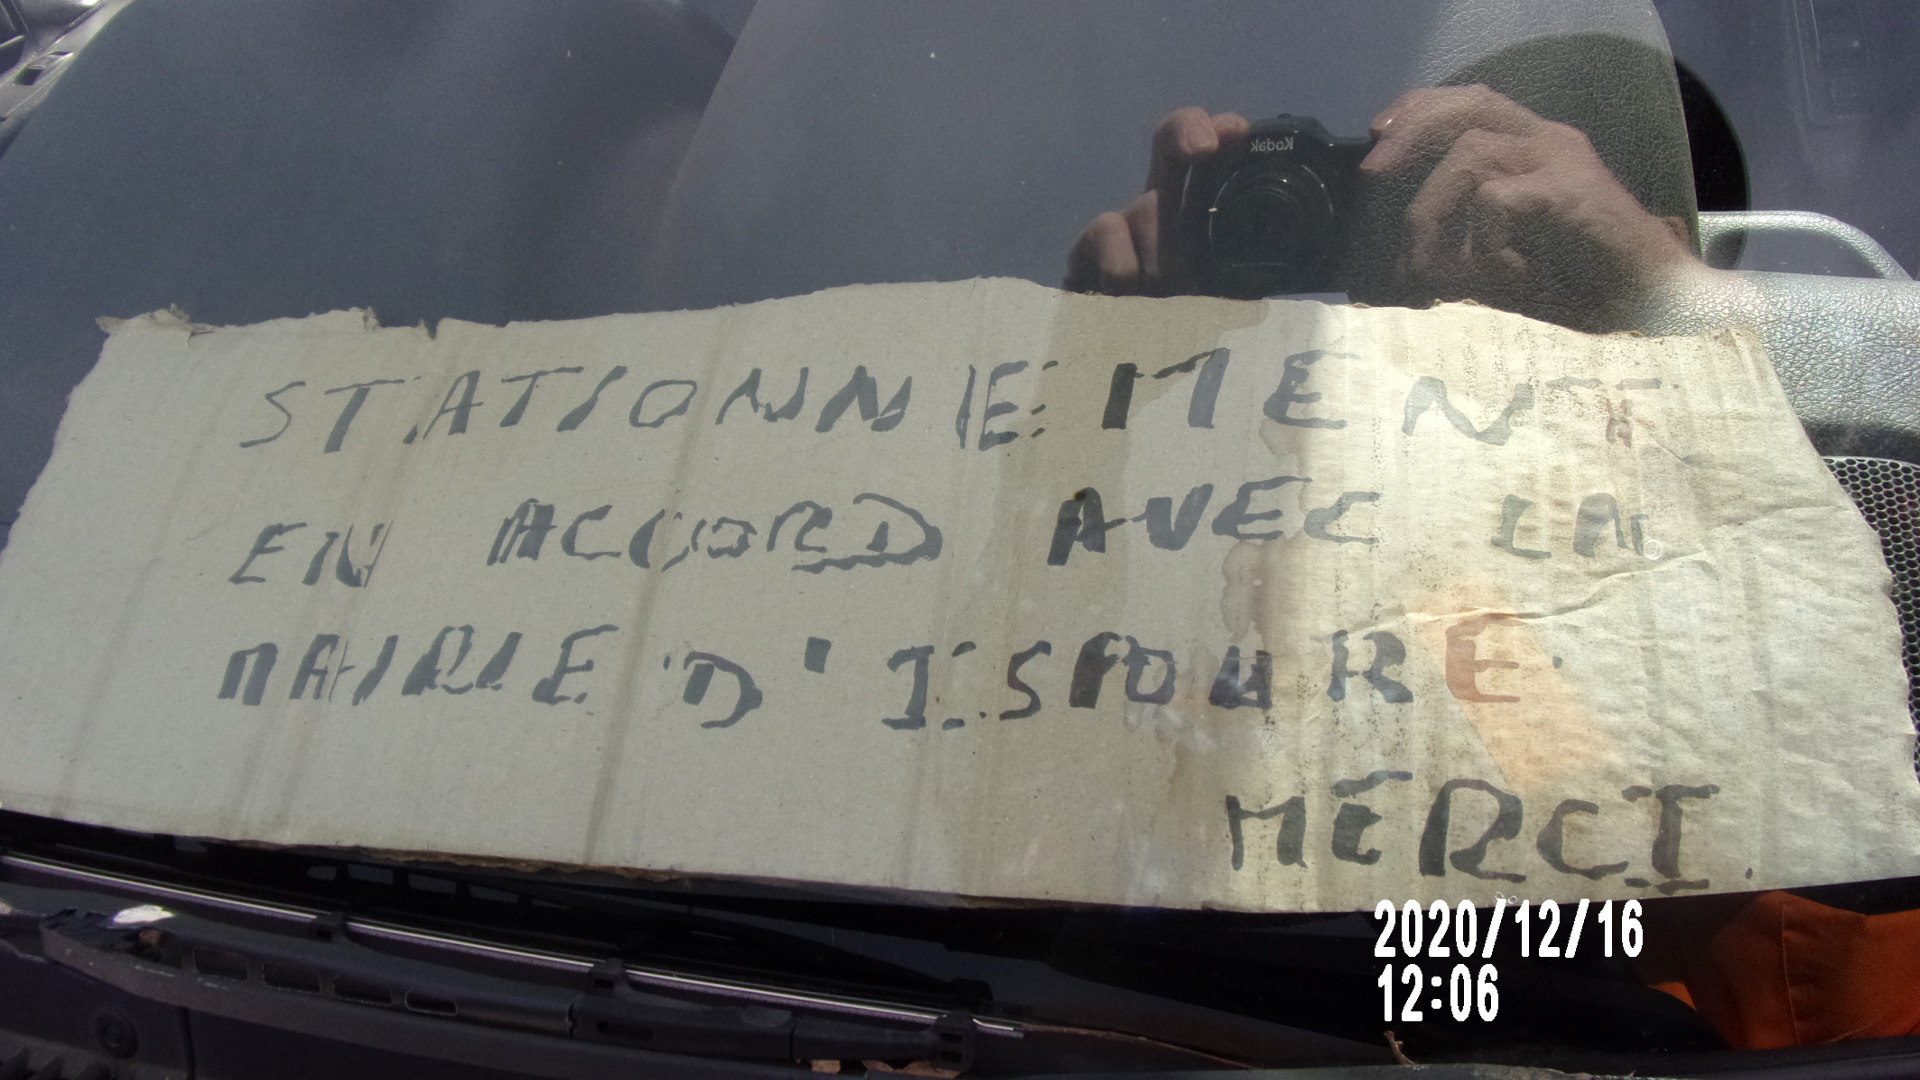 Kodak
STATIONNEMENT
EN ACCORD AVEC LA
MAIRIE D'ISPOURE
MERCI.
2020/12/16
12:06